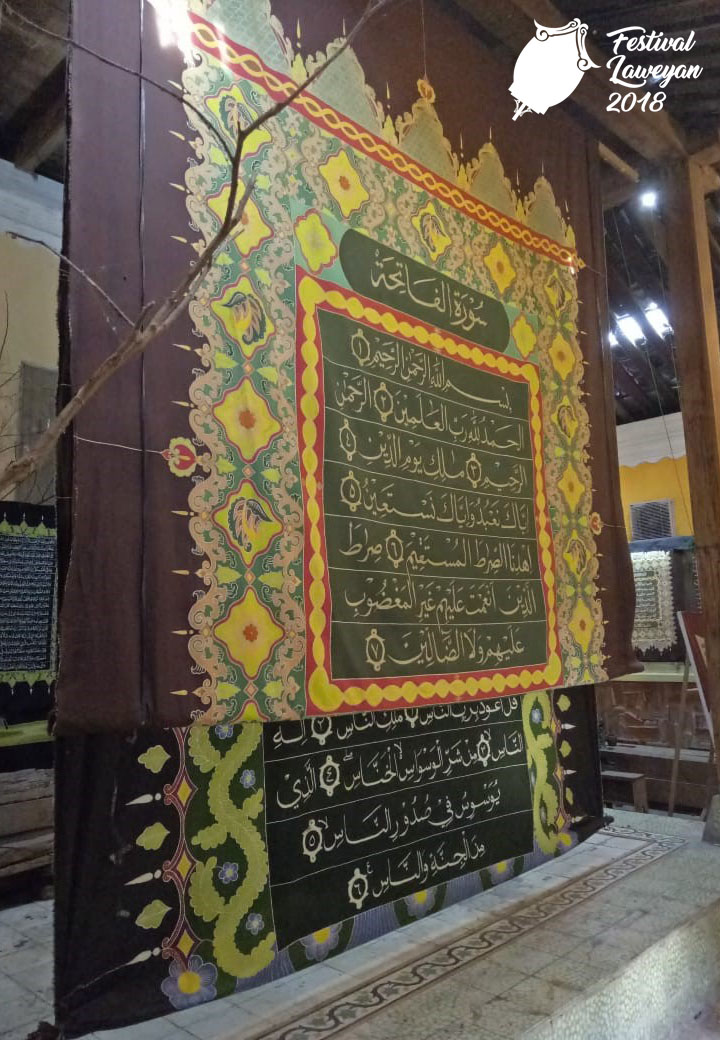 Festival
Laweyan
2018
سُورَةُ الفَاتِحَةِ
بِسْمِ اللَّهِ الرَّحْمَنِ الرَّحِيمِ ١
الحَمْدُ لِلَّهِ رَبِّ العَالَمِينَ ٢ الرَّحْمَنِ
الرَّحِيمِ ٣ مَالِكِ يَوْمِ الدِّينِ ٤
إِيَّاكَ نَعْبُدُ وَإِيَّاكَ نَسْتَعِينُ ٥
اِهْدِنَا الصِّرَاطَ المُسْتَقِيمَ ٦ صِرَاطَ
الَّذِينَ أَنْعَمْتَ عَلَيْهِمْ غَيْرِ المَغْضُوبِ
عَلَيْهِمْ وَلَا الضَّالِّينَ ٧
قُلْ أَعُوذُ بِرَبِّ النَّاسِ ١ مَلِكِ النَّاسِ ٢ إِلَهِ
النَّاسِ ٣ مِنْ شَرِّ الوَسْوَاسِ الخَنَّاسِ ٤ الَّذِي
يُوَسْوِسُ فِي صُدُورِ النَّاسِ ٥
مِنَ الجِنَّةِ وَالنَّاسِ ٦